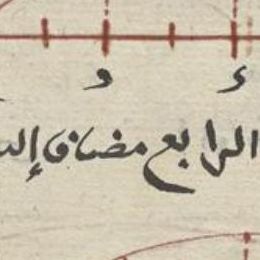 ء و
الرابع مضاف إلى